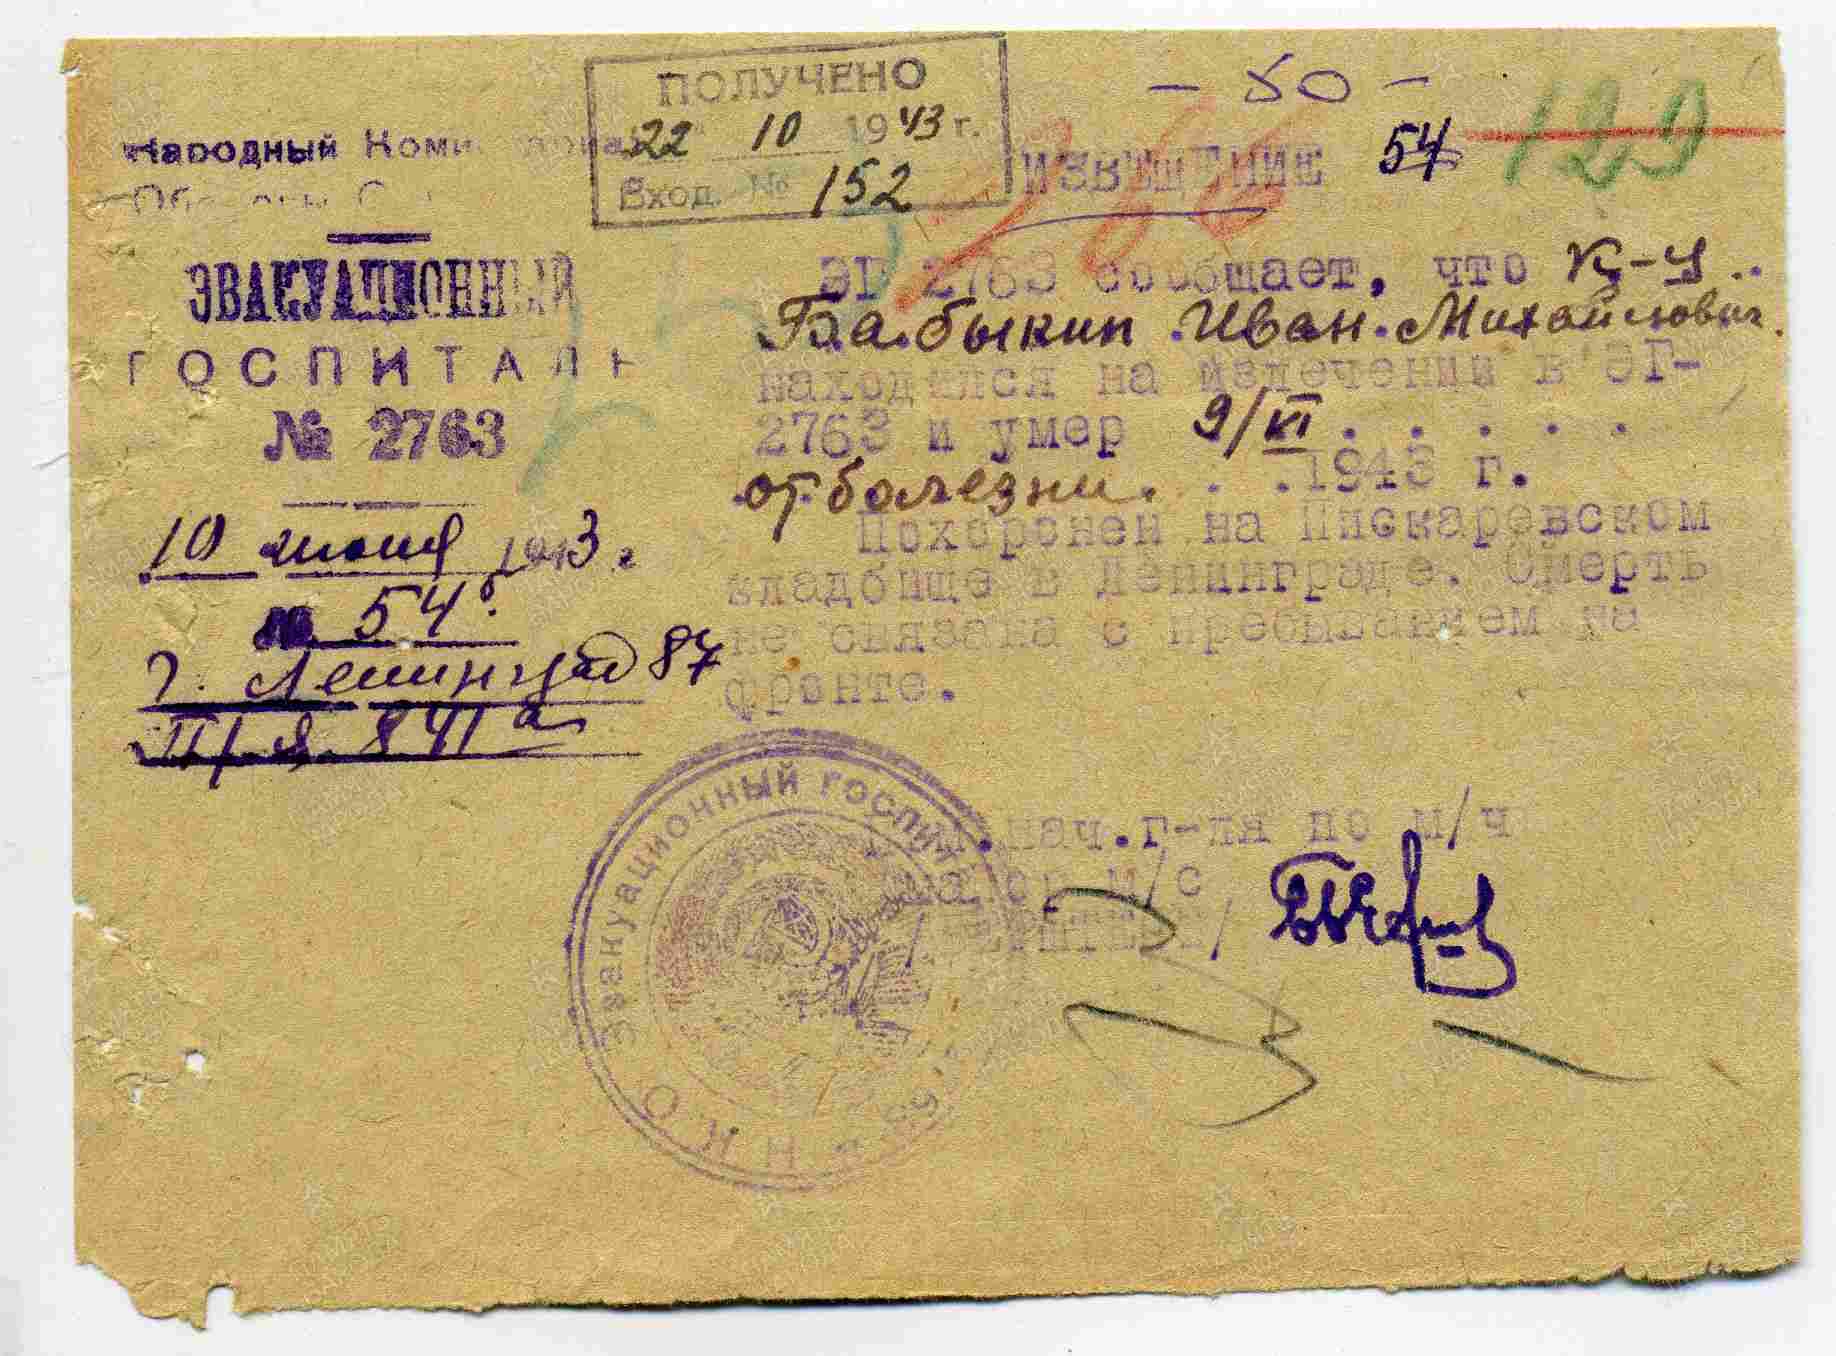 ПОЛУЧЕНО
22 10 1943 г.
Вход. № 152
- 50 -
54
129
Народный
ЭВАКУАЦИОННЫЙ
ГОСПИТАЛЬ
№ 2763
10 июня 1943 г.
№ 54
г. Ленинград 87
ИЗВЕЩЕНИЕ
ЭГ 2763 сообщает, что к-ц..
Бабыкин Иван Михайлович.
находился на излечении в ЭГ-
2763 и умер 9/VI . . . . .
от болезни. . . 1943 г.
Похоронен на Пискаревском
кладбище в Ленинграде. Смерть
не связана с пребыванием на
фронте.
нач.г-ля по м/ч
майор м/с
Эвакуационный госпит
НКО